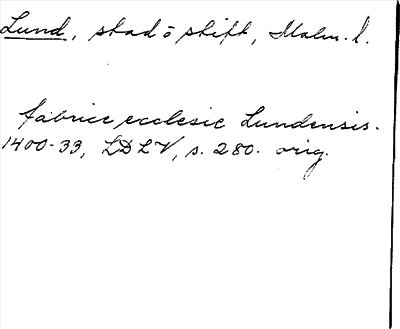 Lund, stad o stift, Malm. l.
fabrice ecclesie Lundensis.
1400-33, LDLV, s. 280. orig.